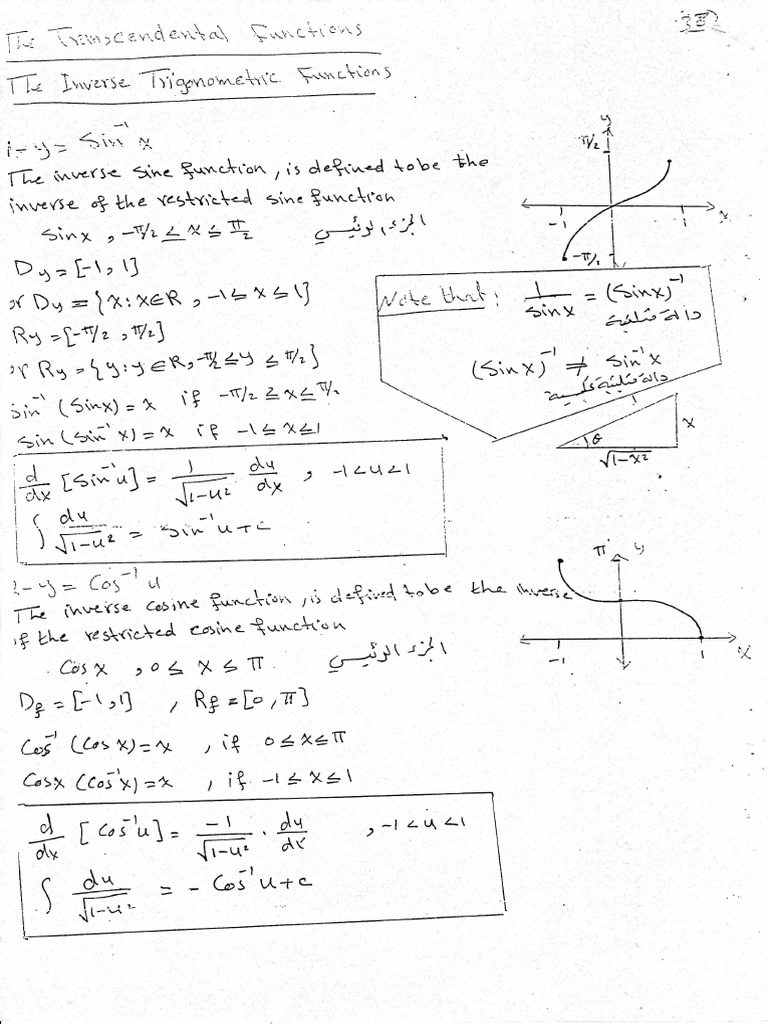 The Transcendental Functions
The Inverse Trigonometric Functions
1- y = Sin⁻¹ x
The inverse sine function, is defined tobe the
inverse of the restricted sine function
Sinx , -π/2 ≤ x ≤ π/2 الجزء الرئيسي
Dy = [-1, 1]
or Dy = {x: x∈R , -1 ≤ x ≤ 1]
Ry = [-π/2 , π/2]
or Ry = {y: y∈R, -π/2 ≤ y ≤ π/2}
Sin⁻¹ (Sinx) = x if -π/2 ≥ x ≤ π/2
Sin (Sin⁻¹ x) = x if -1 ≤ x ≤ 1
d/dx [Sin⁻¹ u] = 1/√(1-u²) du/dx , -1 < u < 1
∫ du/√(1-u²) = Sin⁻¹ u + c
y
π/2
-1 1 x
-π/2
Note that: 1/sinx = (Sinx)⁻¹
دالة مثلثية
(Sinx)⁻¹ ≠ Sin⁻¹ x
دالة مثلثية عكسية
1
x
θ
√(1-x²)
2- y = Cos⁻¹ u
The inverse cosine function, is defined tobe the inverse
of the restricted cosine function
Cos x , 0 ≤ x ≤ π الجزء الرئيسي
Df = [-1, 1] , Rf = [0, π]
Cos⁻¹ (Cos x) = x , if 0 ≤ x ≤ π
Cosx (Cos⁻¹ x) = x , if -1 ≤ x ≤ 1
d/dx [Cos⁻¹ u] = -1/√(1-u²) . du/dx , -1 < u < 1
∫ du/√(1-u²) = - Cos⁻¹ u + c
π y
-1 1 x